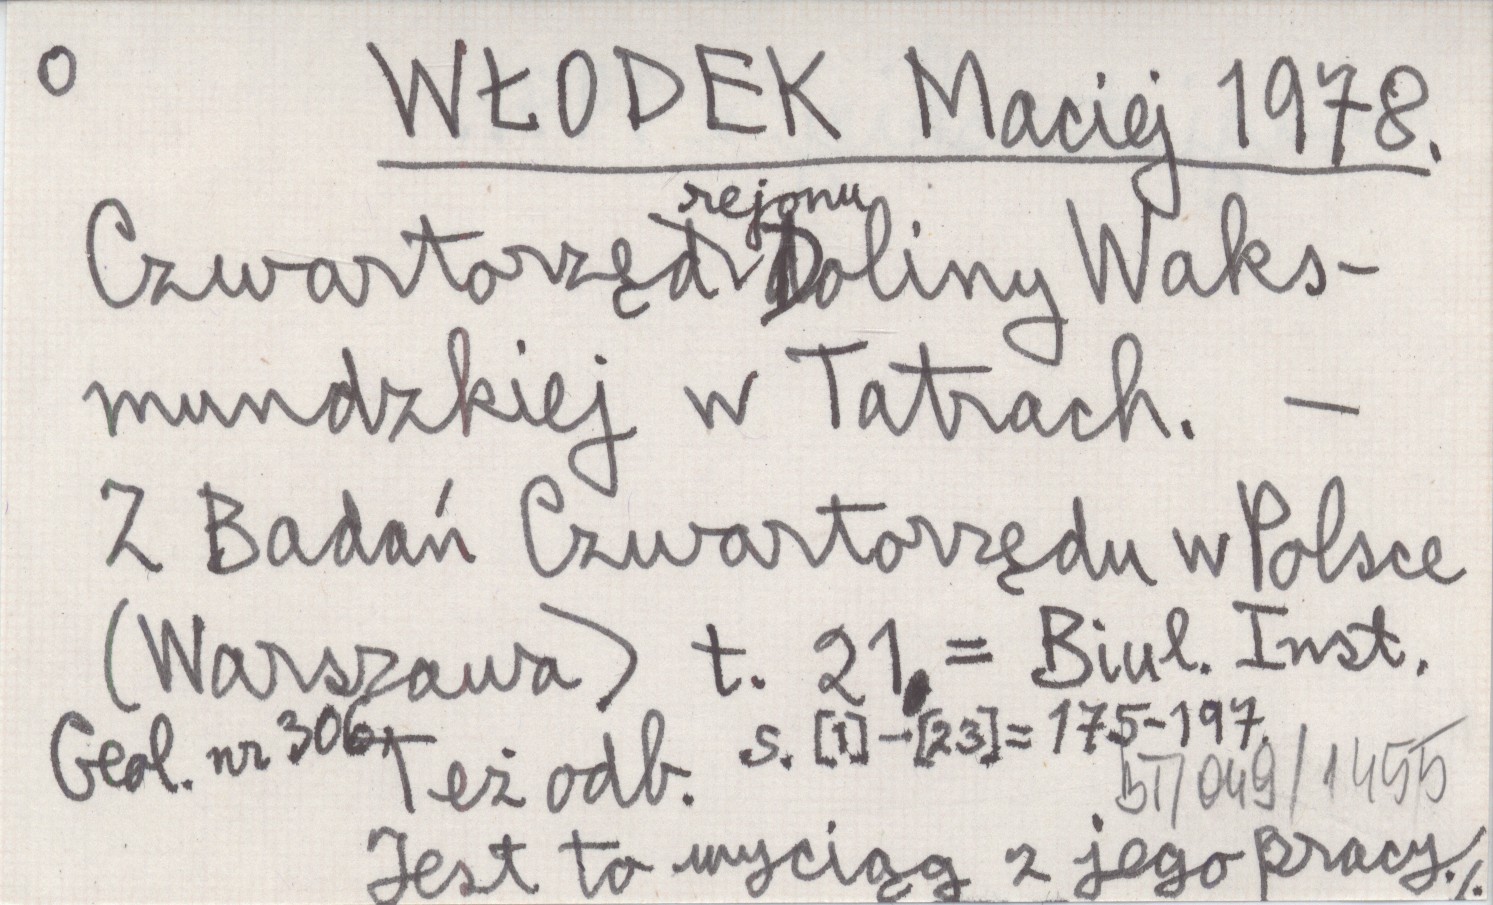 O WŁODEK Maciej 1978.
rejonu
Czwartorzęd Doliny Waks-
mundzkiej w Tatrach. —
Z Badań Czwartorzędu w Polsce
(Warszawa) t. 21. = Biul. Inst.
Geol. nr 306. Też odb. s. [1]-[23]=175-197.
BT/049/1455
Jest to wyciąg z jego pracy./.